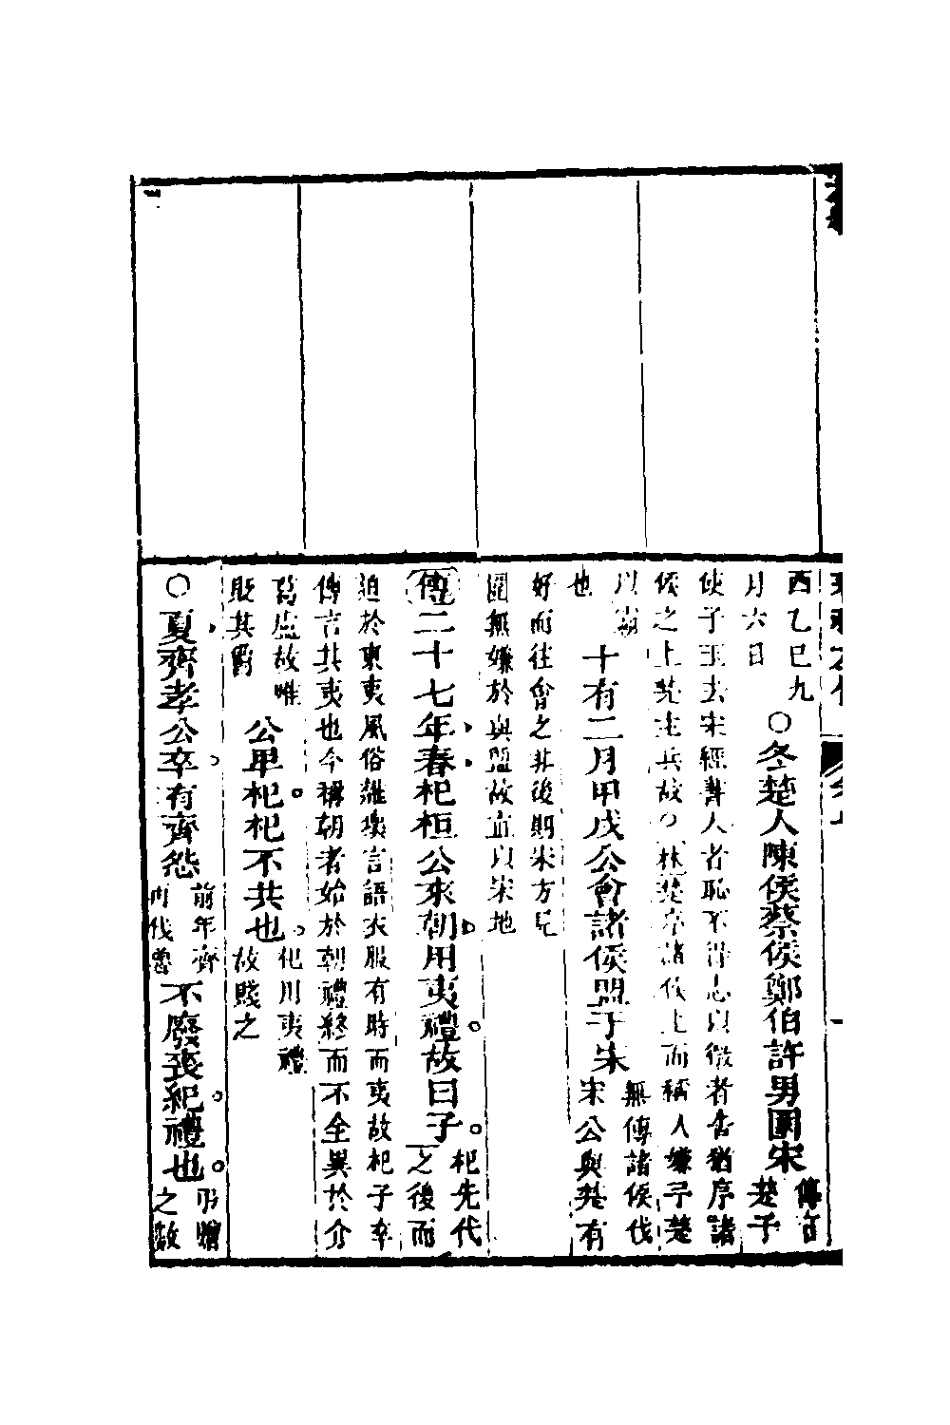 酉乙巳九
月六日
○冬楚人陳侯蔡侯鄭伯許男圍宋
傳言
楚子
使子玉去宋經書人者恥不得志以微者告猶序諸
侯之上楚主兵故○林楚序諸侯上而稱人嫌予楚
以霸
也
十有二月甲戌公會諸侯盟于宋
無傳諸侯伐
宋公與楚有
好而往會之非後期宋方見
圍無嫌於與盟故直以宋地
傳二十七年春杞桓公來朝用夷禮故曰子
杞先代
之後而
迫於東夷風俗雜壞言語衣服有時而夷故杞子卒
傳言其夷也今稱朝者始於朝禮終而不全異於介
葛盧故唯
貶其爵
公卑杞杞不共也
杞用夷禮
故賤之
○夏齊孝公卒有齊怨
前年齊
再伐魯
不廢喪紀禮也
弔贈
之數